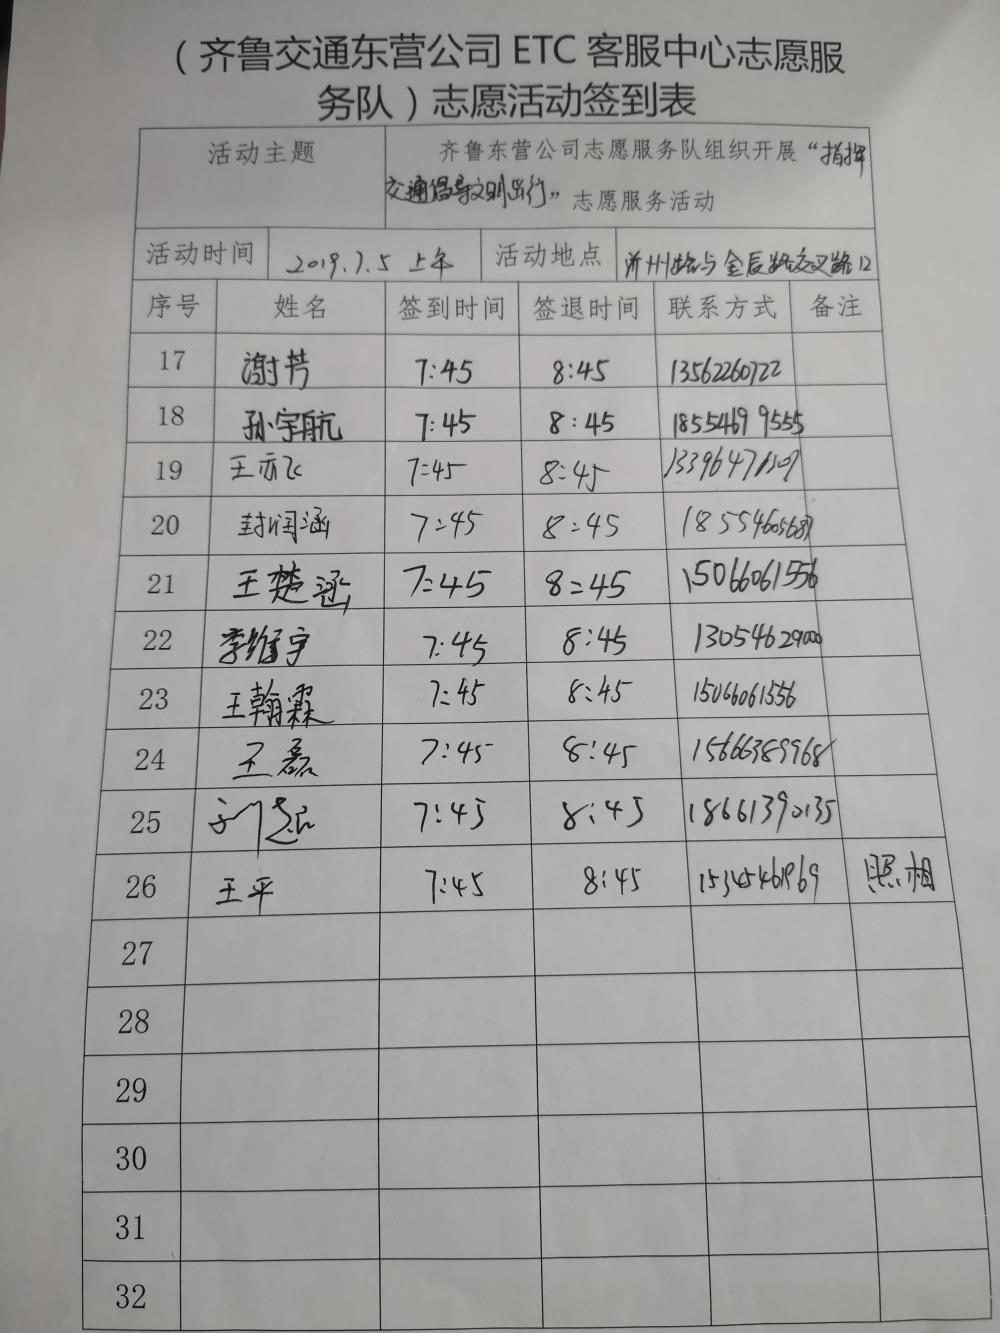 （齐鲁交通东营公司 ETC 客服中心志愿服
务队）志愿活动签到表
活动主题 齐鲁东营公司志愿服务队组织开展“指挥
交通倡导文明出行”志愿服务活动
活动时间 2019.7.5 上午 活动地点 沂州路与金辰路交叉路口
序号 姓名 签到时间 签退时间 联系方式 备注
17 谢芳 7:45 8:45 13562260722
18 孙宇航 7:45 8:45 18554699555
19 王亦飞 7:45 8:45
20 封润涵 7:45 8:45
21 王楚涵 7:45 8:45 15066061556
22 李维宇 7:45 8:45 13054629000
23 王翰霖 7:45 8:45 15066061556
24 王磊 7:45 8:45 15666389968
25 7:45 8:45 18661390135
26 王平 7:45 8:45 15345461969 照相
27
28
29
30
31
32